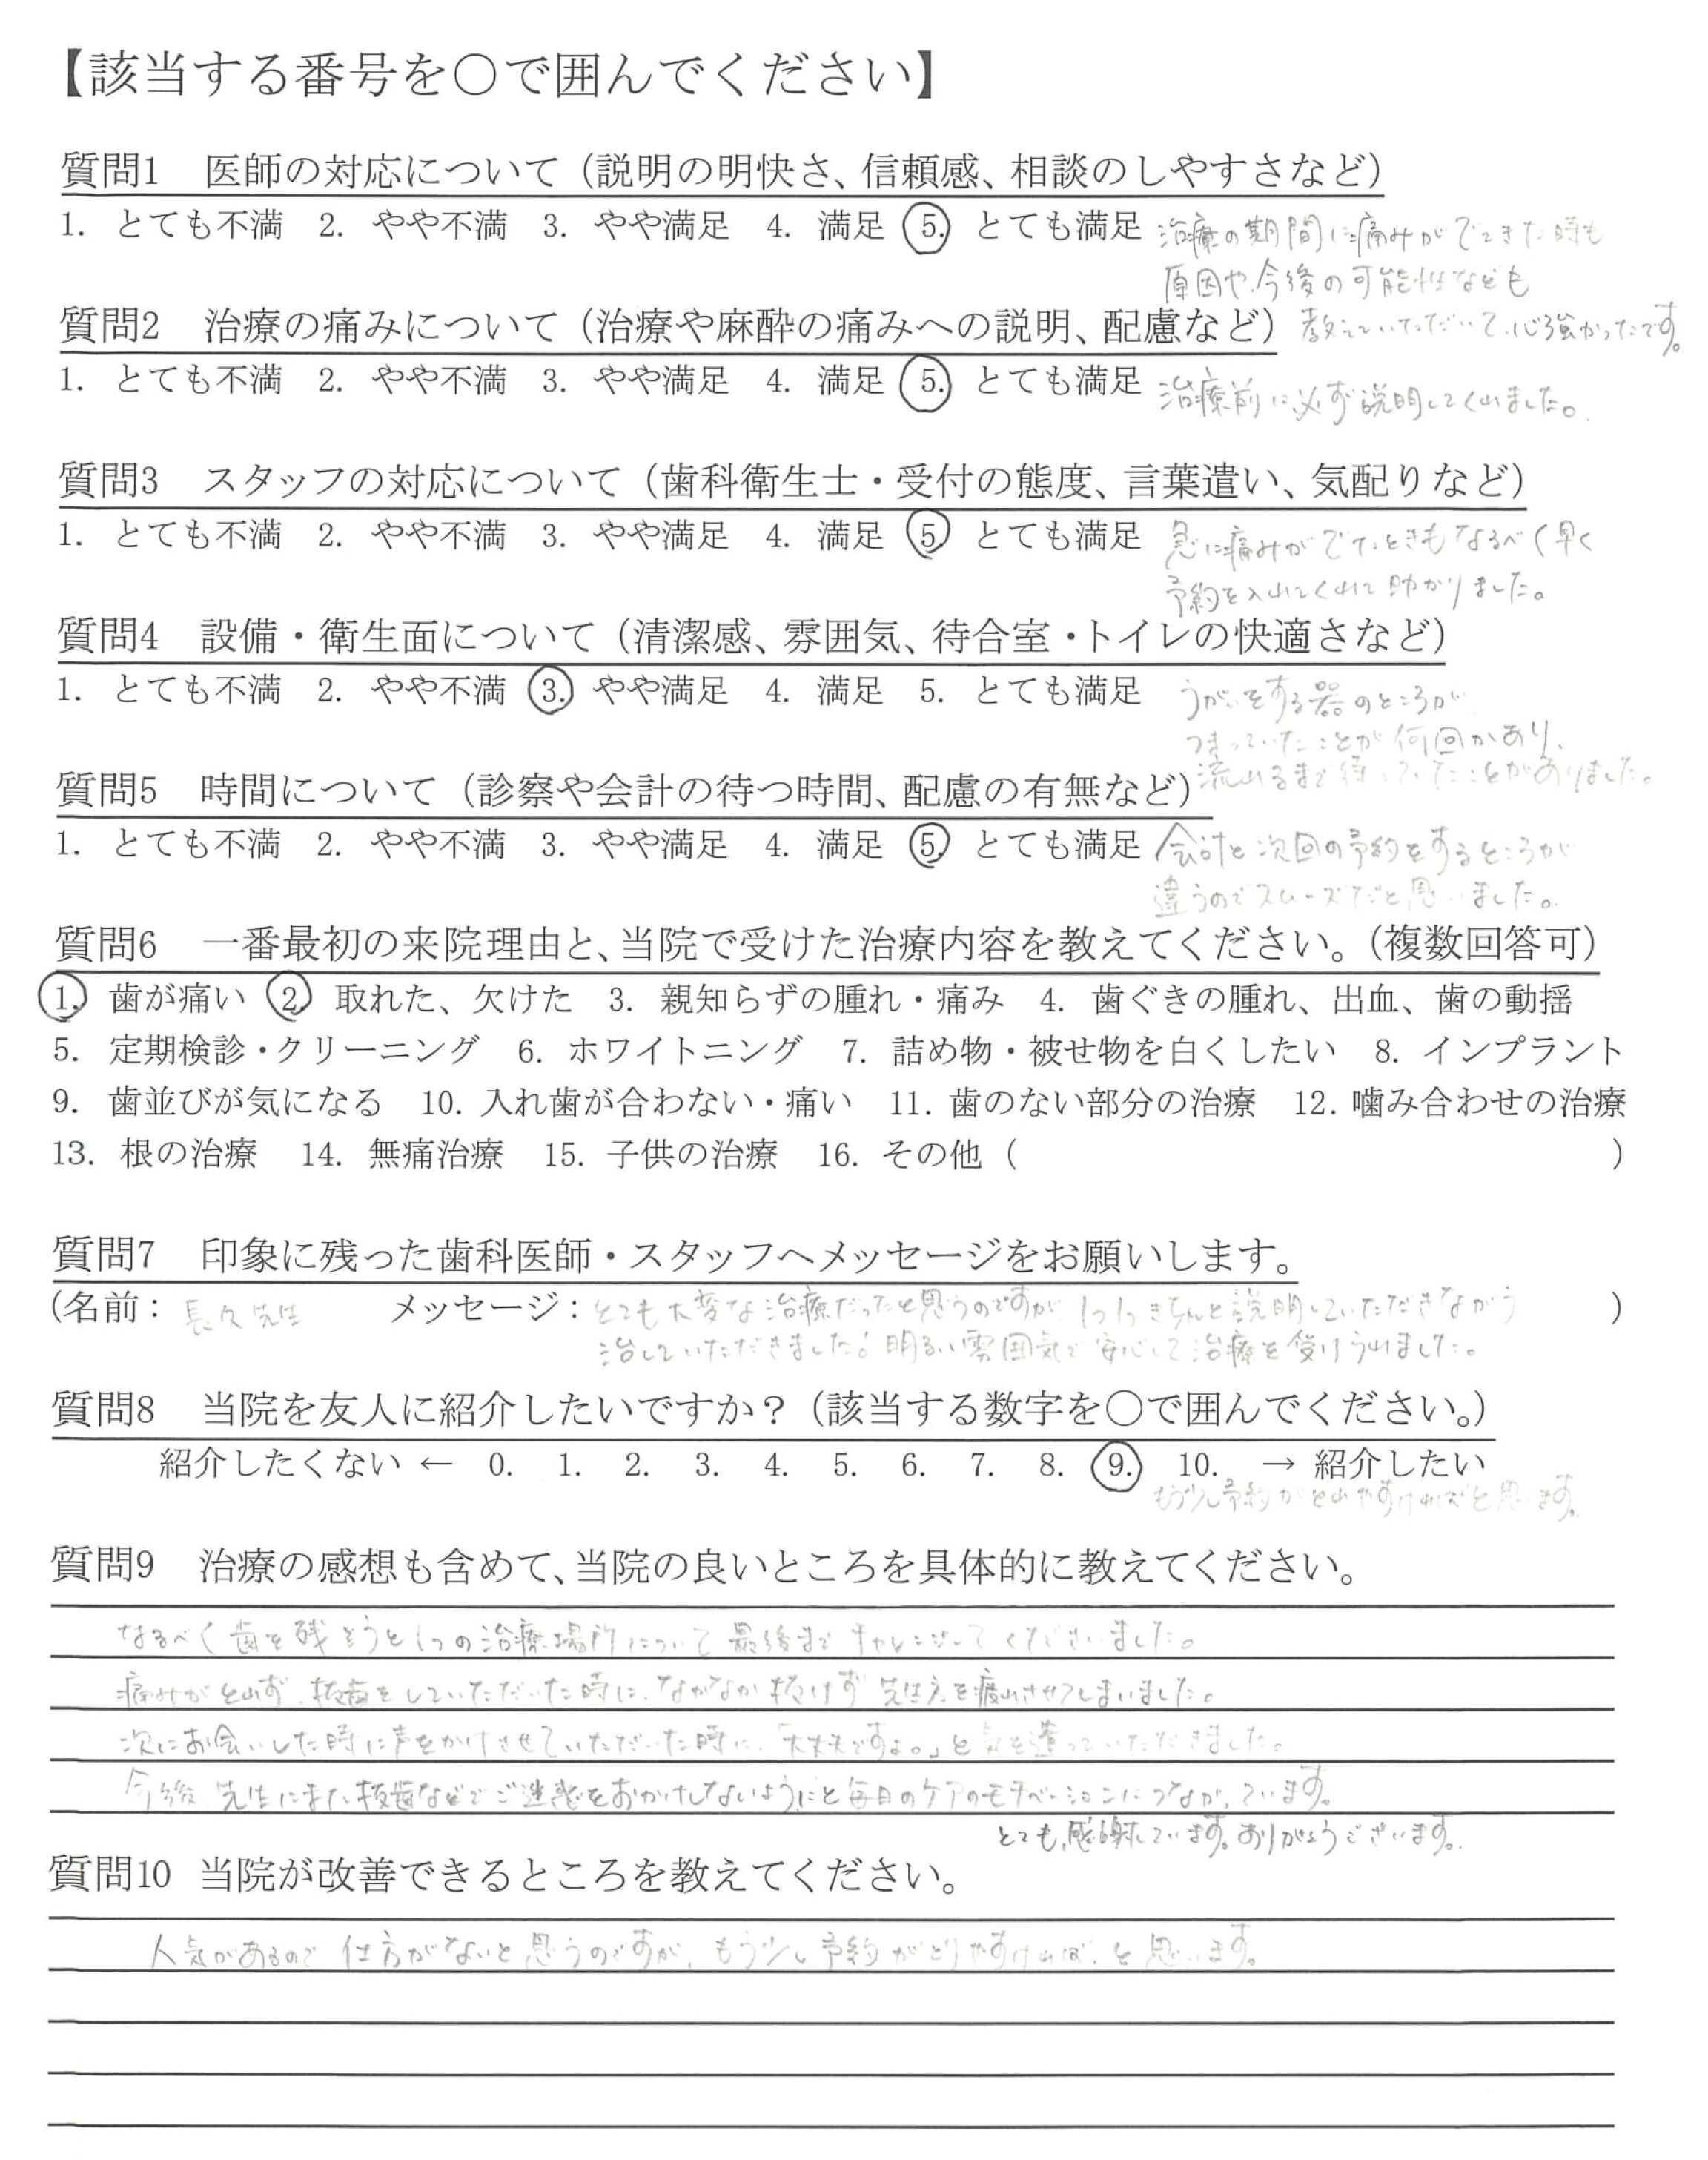 【該当する番号を○で囲んでください】
質問1　医師の対応について（説明の明快さ、信頼感、相談のしやすさなど）
1. とても不満　2. やや不満　3. やや満足　4. 満足　5. とても満足　治療の期間に痛みがでてきた時も
原因や今後の可能性なども
質問2　治療の痛みについて（治療や麻酔の痛みへの説明、配慮など）　教えていただいて、心強かったです。
1. とても不満　2. やや不満　3. やや満足　4. 満足　5. とても満足　治療前に必ず説明してくれました。
質問3　スタッフの対応について（歯科衛生士・受付の態度、言葉遣い、気配りなど）
1. とても不満　2. やや不満　3. やや満足　4. 満足　5. とても満足　急に痛みがでたときもなるべく早く
予約を入れてくれて助かりました。
質問4　設備・衛生面について（清潔感、雰囲気、待合室・トイレの快適さなど）
1. とても不満　2. やや不満　3. やや満足　4. 満足　5. とても満足　うがいをする器のところが
つまっていたことが何回かあり、
流れるまで待っていたことがありました。
質問5　時間について（診察や会計の待つ時間、配慮の有無など）
1. とても不満　2. やや不満　3. やや満足　4. 満足　5. とても満足　会計と次回の予約をするところが
違うのでスムーズだと思いました。
質問6　一番最初の来院理由と、当院で受けた治療内容を教えてください。（複数回答可）
1. 歯が痛い　2. 取れた、欠けた　3. 親知らずの腫れ・痛み　4. 歯ぐきの腫れ、出血、歯の動揺
5. 定期検診・クリーニング　6. ホワイトニング　7. 詰め物・被せ物を白くしたい　8. インプラント
9. 歯並びが気になる　10. 入れ歯が合わない・痛い　11. 歯のない部分の治療　12. 噛み合わせの治療
13. 根の治療　14. 無痛治療　15. 子供の治療　16. その他（　　　）
質問7　印象に残った歯科医師・スタッフへメッセージをお願いします。
（名前：長久先生　メッセージ：とても大変な治療だったと思うのですが、1つ1つきちんと説明していただきながら　）
治していただきました！明るい雰囲気で安心して治療を受けられました。
質問8　当院を友人に紹介したいですか？（該当する数字を○で囲んでください。）
紹介したくない ← 0. 1. 2. 3. 4. 5. 6. 7. 8. 9. 10. → 紹介したい
もう少し予約がとれやすければと思います。
質問9　治療の感想も含めて、当院の良いところを具体的に教えてください。
なるべく歯を残そうと1つの治療場所について最後までチャレンジしてくださいました。
痛みがとれず、抜歯をしていただいた時に、なかなか抜けず先生方を疲れさせてしまいました。
次にお会いした時に声をかけさせていただいた時に、「大丈夫ですよ。」と気を遣っていただきました。
今後先生にまた抜歯などでご迷惑をおかけしないようにと毎日のケアのモチベーションにつながっています。
とても感謝しています。ありがとうございます。
質問10　当院が改善できるところを教えてください。
人気があるので仕方がないと思うのですが、もう少し予約がとりやすければ、と思います。